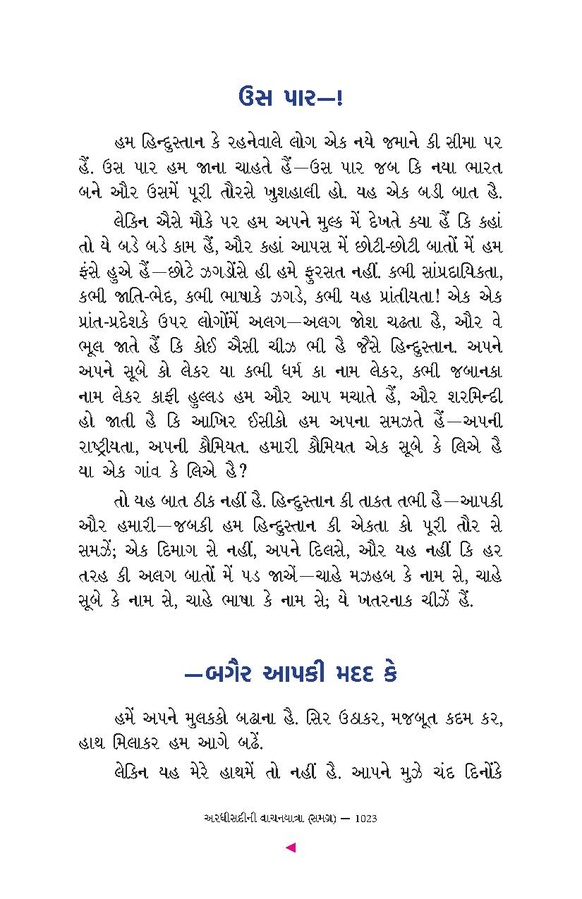 ઉસ પાર—!
હમ હિન્દુસ્તાન કે રહનેવાલે લોગ એક નયે જમાને કી સીમા પર
હૈં. ઉસ પાર હમ જાના ચાહતે હૈં—ઉસ પાર જબ કિ નયા ભારત
બને ઔર ઉસમેં પૂરી તૌરસે ખુશહાલી હો. યહ એક બડી બાત હૈ.
લેકિન ઐસે મૌકે પર હમ અપને મુલ્ક મેં દેખતે ક્યા હૈં કિ કહાં
તો યે બડે બડે કામ હૈં, ઔર કહાં આપસ મેં છોટી-છોટી બાતોં મેં હમ
ફંસે હુએ હૈં—છોટે ઝગડોંસે હી હમે ફુરસત નહીં. કભી સાંપ્રદાયિકતા,
કભી જાતિ-ભેદ, કભી ભાષાકે ઝગડે, કભી યહ પ્રાંતીયતા! એક એક
પ્રાંત-પ્રદેશકે ઉપર લોગોંમેં અલગ—અલગ જોશ ચઢતા હૈ, ઔર વે
ભૂલ જાતે હૈં કિ કોઈ ઐસી ચીઝ ભી હૈ જૈસે હિન્દુસ્તાન. અપને
અપને સૂબે કો લેકર યા કભી ધર્મ કા નામ લેકર, કભી જબાનકા
નામ લેકર કાફી હુલ્લડ હમ ઔર આપ મચાતે હૈં, ઔર શરમિન્દી
હો જાતી હૈ કિ આખિર ઈસીકો હમ અપના સમઝતે હૈં—અપની
રાષ્ટ્રીયતા, અપની કૌમિયત. હમારી કૌમિયત એક સૂબે કે લિએ હૈ
યા એક ગાંવ કે લિએ હૈ?
તો યહ બાત ઠીક નહીં હૈ. હિન્દુસ્તાન કી તાકત તભી હૈ—આપકી
ઔર હમારી—જબકી હમ હિન્દુસ્તાન કી એકતા કો પૂરી તૌર સે
સમઝેં; એક દિમાગ સે નહીં, અપને દિલસે, ઔર યહ નહીં કિ હર
તરહ કી અલગ બાતોં મેં પડ જાએં—ચાહે મઝહબ કે નામ સે, ચાહે
સૂબે કે નામ સે, ચાહે ભાષા કે નામ સે; યે ખતરનાક ચીઝેં હૈં.
—બગૈર આપકી મદદ કે
હમેં અપને મુલકકો બઢાના હૈ. સિર ઉઠાકર, મજબૂત કદમ કર,
હાથ મિલાકર હમ આગે બઢેં.
લેકિન યહ મેરે હાથમેં તો નહીં હૈ. આપને મુઝે ચંદ દિનોંકે
અરધીસદીની વાચનયાત્રા (સમગ્ર) — 1023